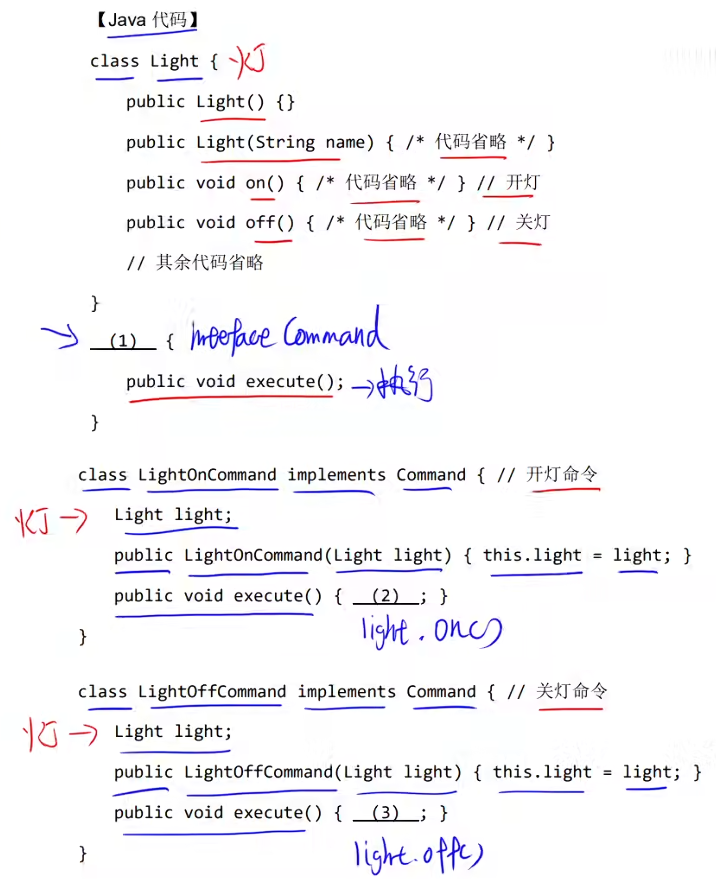 【Java 代码】
class Light { 灯
public Light() {}
public Light(String name) { /* 代码省略 */ }
public void on() { /* 代码省略 */ } // 开灯
public void off() { /* 代码省略 */ } // 关灯
// 其余代码省略
}
(1) { Interface Command
public void execute(); →执行
}
class LightOnCommand implements Command { // 开灯命令
灯→ Light light;
public LightOnCommand(Light light) { this.light = light; }
public void execute() { (2) ; }
light.on()
}
class LightOffCommand implements Command { // 关灯命令
灯→ Light light;
public LightOffCommand(Light light) { this.light = light; }
public void execute() { (3) ; }
light.off()
}